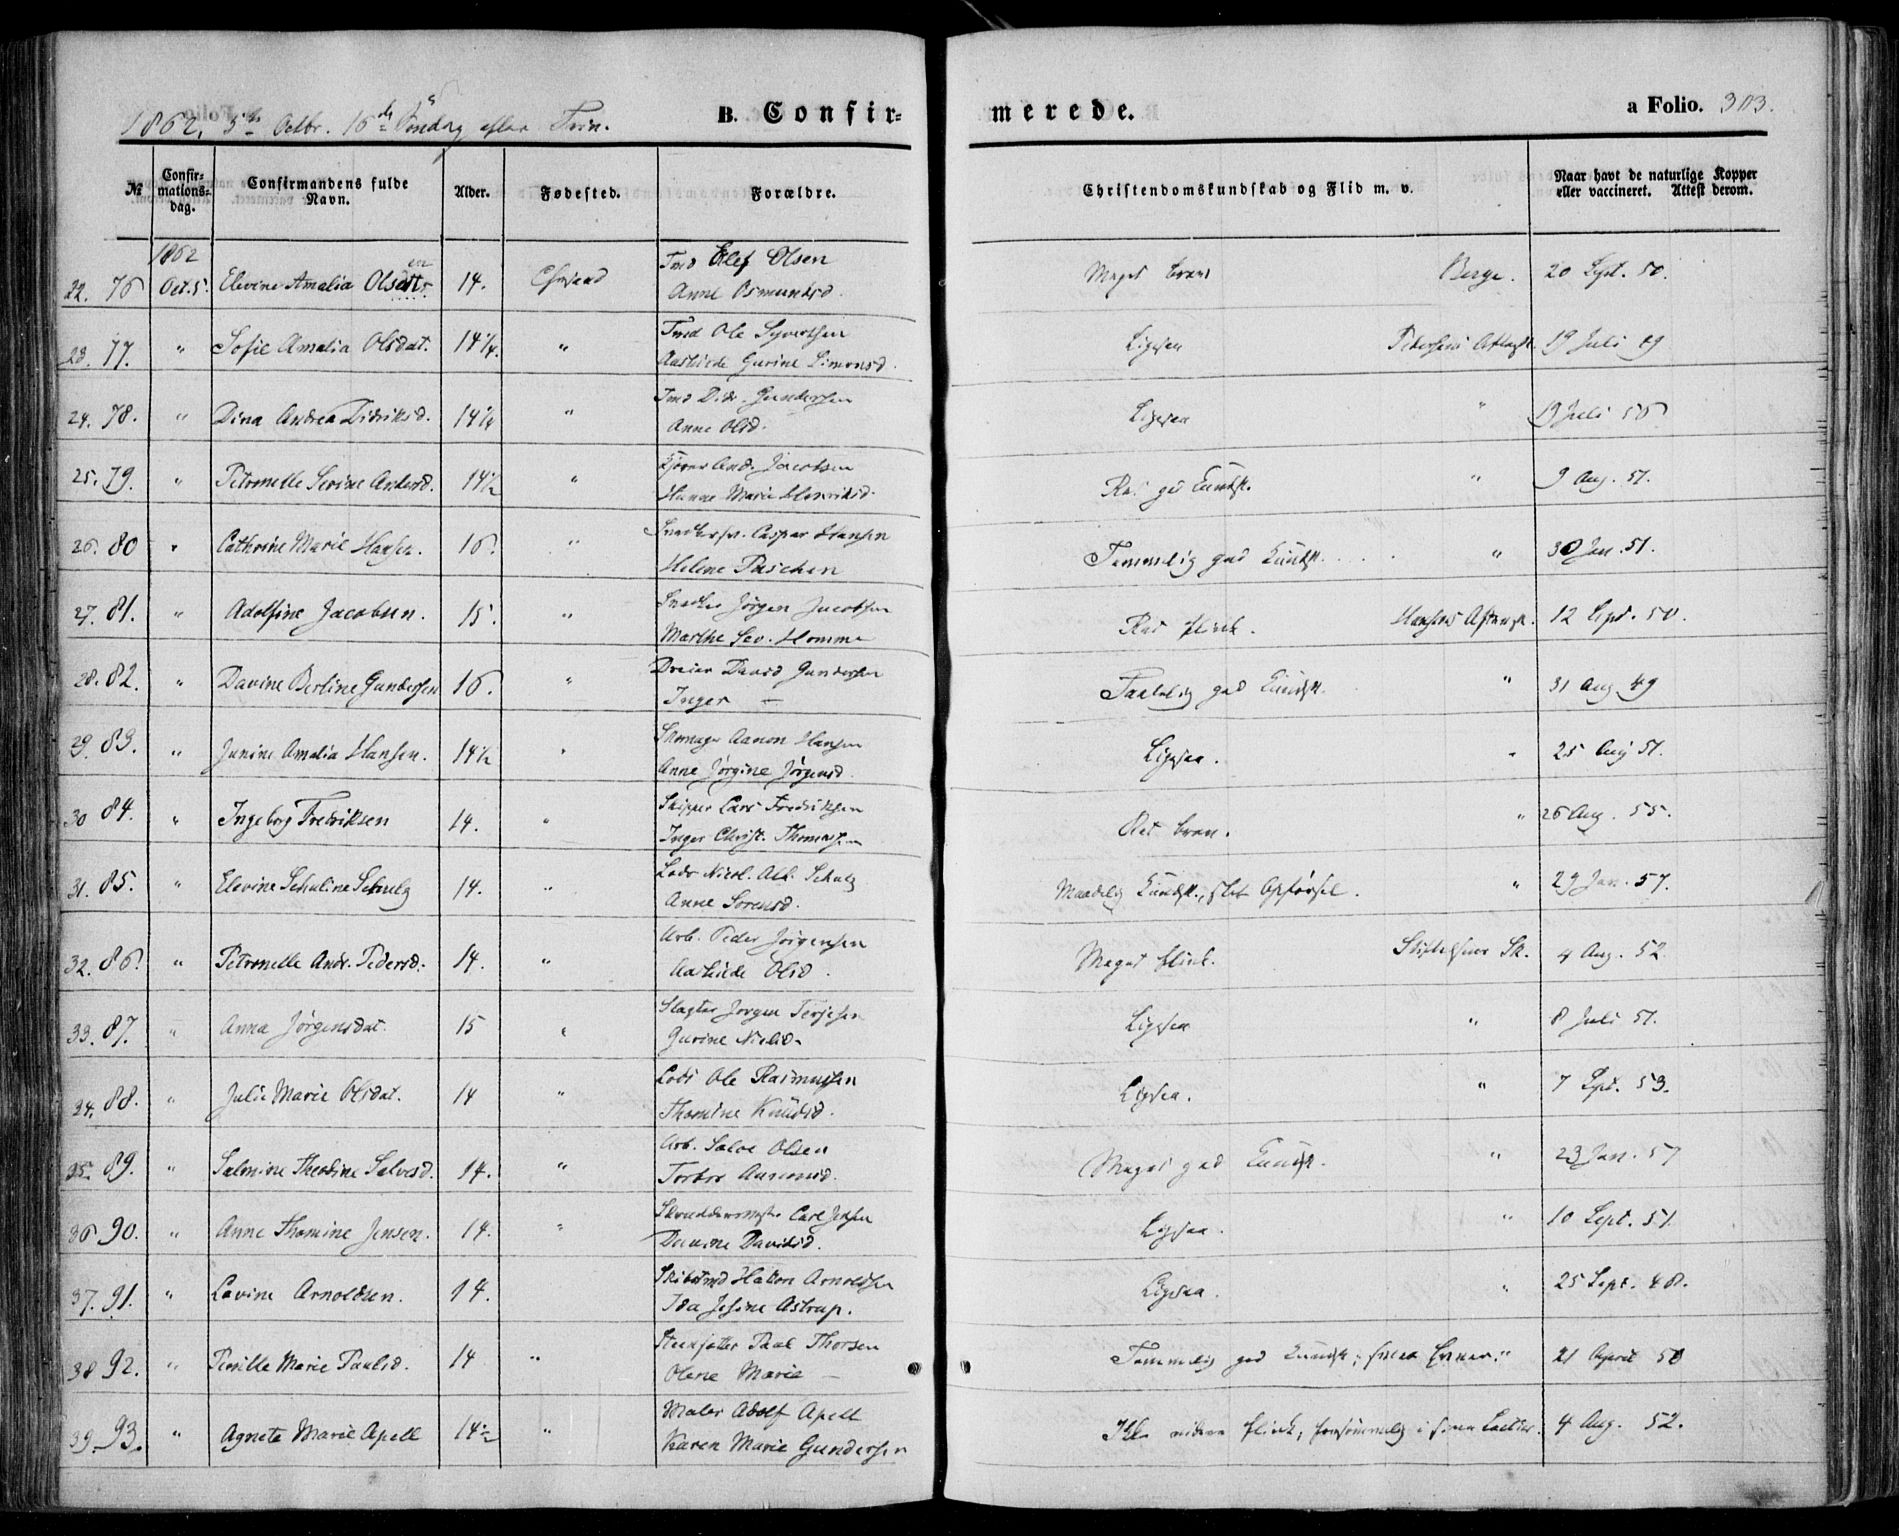 1862, 5te Octbr. 16de Søndag efter Trin.
B. Confir-
merede.
a Folio. 303.
№
Confir-
mations-
dag.
Confirmandens fulde
Navn.
Alder.
Fødested.
Forældre.
Christendomskundskab og Flid m. v.
Naar havt de naturlige Kopper
eller vaccineret. Attest derom.
1862
22. 76 Oct. 5. Elevine Amalia Olsdtr. 14. Chrsand
Tmd Elef Olsen
Anne Osmundsd.
Meget brav Berge. 20 Sept. 50.
23. 77. " Sofie Amalia Olsdat. 14¼. "
Tmd Ole Syvertsen
Aashilde Gurine Simonsd.
Ligesaa Pedersens 19 Juli 49
24. 78. " Dina Andrea Didriksd. 14¼ "
Tmd Didr. Gundersen
Anne Olsd.
Ligesaa " 19 Juli 50
25. 79. " Petronelle Serine Andersd. 14½ "
And. Jacobsen
Hanne Marie Henriksd.
Ret god Kundsk. " 9 Aug. 51.
26. 80 " Cathrine Marie Hansen. 16. "
Caspar Hansen
Helene Paschen
Temmelig god Kundsk. " 30 Jan. 51.
27. 81. " Adolfine Jacobsen. 15. "
Snedker Jørgen Jacobsen
Marthe Sev. Homme
Ret flink. Hansens 12 Sept. 50.
28. 82. " Davine Berline Gundersen 16. "
Dreier David Gundersen
Inger —
Taalelig god Kundsk. " 31 Aug 49
29 83. " Janine Amalia Hansen. 14½ "
Skomager Aanon Hansen
Anne Jørgine Jørgensd.
Ligesaa. " 25 Aug 51.
30 84. " Ingeborg Fredriksen 14. "
Skipper Lars Fredriksen
Inger Christ. Thomassen
Ret brav. " 26 Aug. 55.
31. 85. " Elevine Schuline Schulz 14. "
Lods Nicol. Alb. Schulz
Anne Sørensd.
Maadelig Kundsk., slet Opførsel. " 29 Jan. 57.
32. 86. " Petronelle Andr. Pedersd. 14. "
Arb. Peder Jørgensen
Aashilde Olsd.
Meget flink. Stiftelsens Sk. 4 Aug. 52
33. 87. " Anna Jørgensdat. 15 "
Slagter Jørgen Terjesen
Gurine Nielsd.
Ligesaa " 8 Juli 51.
34. 88. " Julie Marie Olsdat. 14 "
Lods Ole Rasmussen
Thomine Knudsd.
Ligesaa. " 7 Sept. 53.
35 89. " Salmine Theodine Salvesd. 14. "
Arb. Salve Olsen
Torbor Aanensd.
Meget god Kundsk. " 23 Jan. 57
36 90. " Anne Thomine Jensen. 14. "
Skræddermstr. Carl Jensen
Davine Davidsd.
Ligesaa. " 10 Sept. 51.
37. 91. " Lovine Arnoldsen. 14. "
Skibstmd Hakon Arnoldsen
Ida Jesine Astrup.
Ligesaa. " 25 Sept. 48.
38 92. " Pernille Marie Paulsd. 14 "
Paal Thorsen
Olene Marie —
Temmelig god Kundsk.; svage Evner. " 21 April 50
39. 93. " Agnete Marie Apell 14½ "
Maler Adolf Apell
Karen Marie Gundersen
Ikke videre flink, forsømmelig i sine Lectier. 4 Aug. 52.